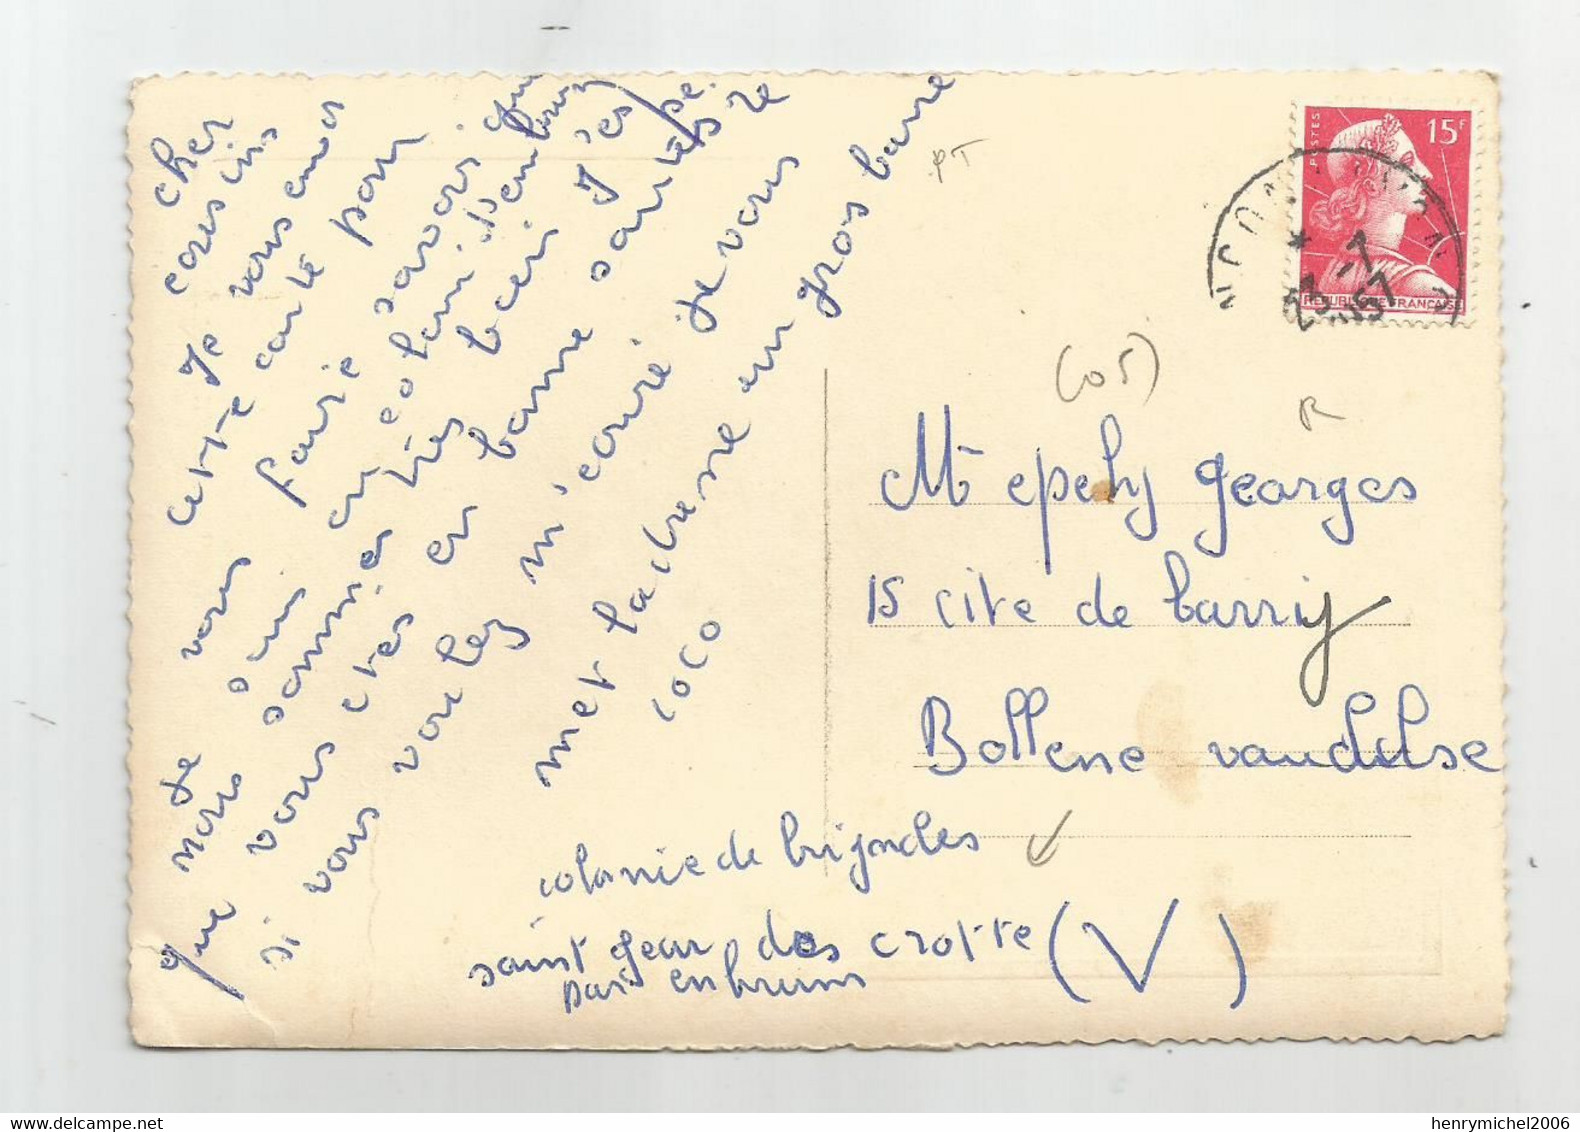 cher
cousins
Je vous envois
cette carte pour
vous faire savoir que
Je suis en colonie
nous sommes très bien J'es
que vous etes en bonne santé
si vous voulez m'écrire Je vous
met l'adresse en gros
coco
colonie de brignoles
saint Jean des crotte (V)
par enbrum
PT
POSTES
15F
REPUBLIQUE FRANÇAISE
23 -7
57
(05)
R
Mr epely georges
15 cite de barry
Bollene vaucluse
henrymichel2006